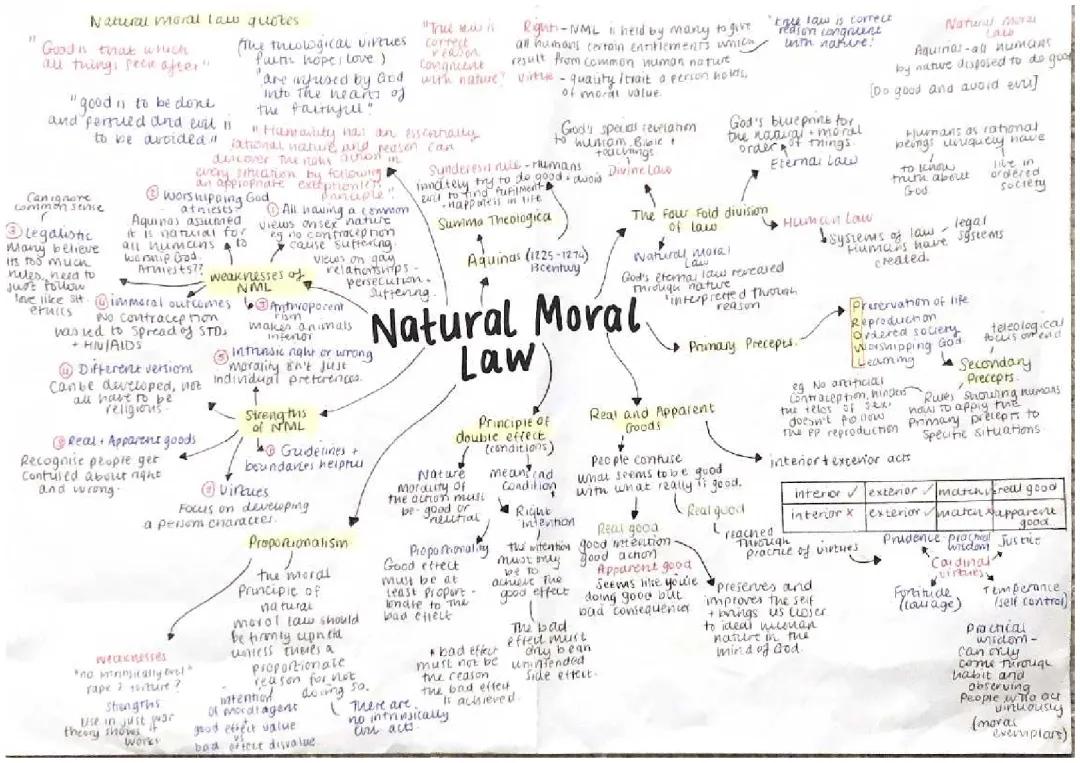 Natural moral law quotes
"Good is that which
all things seek after"
(The theological virtues
faith hope, love)
"are infused by God
into the hearts of
the faithful."
"good is to be done
and persued and evil is
to be avoided"
"True law is
correct
reason
congruent
with nature"
"Humanity has an essentially
rational nature and reason can
discover the right action in
every situation by following
an appropriate exceptionless
principle".
Right - NML is held by many to give
all humans certain entitlements which
result from common human nature
virtue - quality/trait a person holds,
of moral value.
"true law is correct
reason congruent
with nature"
Natural Moral
Law
Aquinas - all humans
by nature disposed to do good
[Do good and avoid evil]
Humans as rational
beings uniquely have
to know
truth about
God
live in
ordered
society
God's special revelation
to humans, Bible +
teachings
Divine Law
God's blueprint for
the natural + moral
order of things.
Eternal Law
The Four Fold division
of law
Human Law
systems of law
Humans have
created.
legal
systems
Natural Moral
Law
God's eternal law revealed
through nature
interpreted through
reason
Synderesis rule - Humans
innately try to do good + avoid
evil to find fulfilment +
happiness in life
Summa Theologica
Aquinas (1225-1274)
13 century
Natural Moral
Law
weaknesses of
NML
① All having a common
views on sex nature
eg no contraception
cause suffering.
views on gay
relationships -
persecution +
suffering.
② worshipping God
atheists?
Aquinas assumed
it is natural for
all humans to
worship God.
Athiests??
Can ignore
common sense
③ Legalistic
Many believe
its too much
rules, need to
just follow
love like sit.
ethics
④ immoral outcomes
No contraception
has led to spread of STDs
+ HIV/AIDS
⑤ Anthropocent
rism
makes animals
inferior
Strengths
of NML
⑤ Intrinsic right or wrong
morality isn't just
individual preferences.
④ Different versions
Can be developed, not
all have to be
religious.
③ Real + Apparent goods
Recognise people get
confused about right
and wrong.
② Virtues
Focus on developing
a person character.
① Guidelines +
boundaries helpful
Proportionalism
the moral
principle of
natural
moral law should
be firmly upheld
unless theres a
proportionate
reason for not
doing so.
There are
no intrinsically
evil acts.
weaknesses
"no intrinsically evil"
rape? torture?
strengths
use in just war
theory shows it
works
intention
of moral agent
good effect value
vs
bad effect disvalue
Principle of
double effect
(conditions)
Nature
morality of
the action must
be good or
neutral
means end
condition
Right
intention
the intention
must only
be to
achieve the
good effect
The bad
effect must
only be an
unintended
side effect.
Proportionality
Good effect
must be at
least propor-
tionate to the
bad effect
* bad effect
must not be
the reason
the bad effect
is achieved.
Real and Apparent
Goods
People confuse
what seems to be good
with what really is good.
Real good
good intention
good action
Apparent good
seems like you're
doing good but
bad consequence
Real good
reached
through
practice of virtues
preserves and
improves the self
+ brings us closer
to ideal human
nature in the
mind of God.
interior + exterior acts
interior ✓ exterior ✓ match ✓ real good
interior × exterior ✓ match × apparent
good
Primary Precepts
Preservation of life
Reproduction
Ordered society
Worshipping God
Learning
teleological
focus on end
Secondary
Precepts.
Rules showing humans
how to apply the
primary precepts to
specific situations.
eg No artificial
contraception, hinders
the telos of sex,
doesn't follow
the PP reproduction
Prudence - practical
wisdom
Justice
Cardinal
virtues
Fortitude
(courage)
Temperance
(self control)
Practical
wisdom -
can only
come through
habit and
observing
people who act
virtuously
(moral
exemplars)